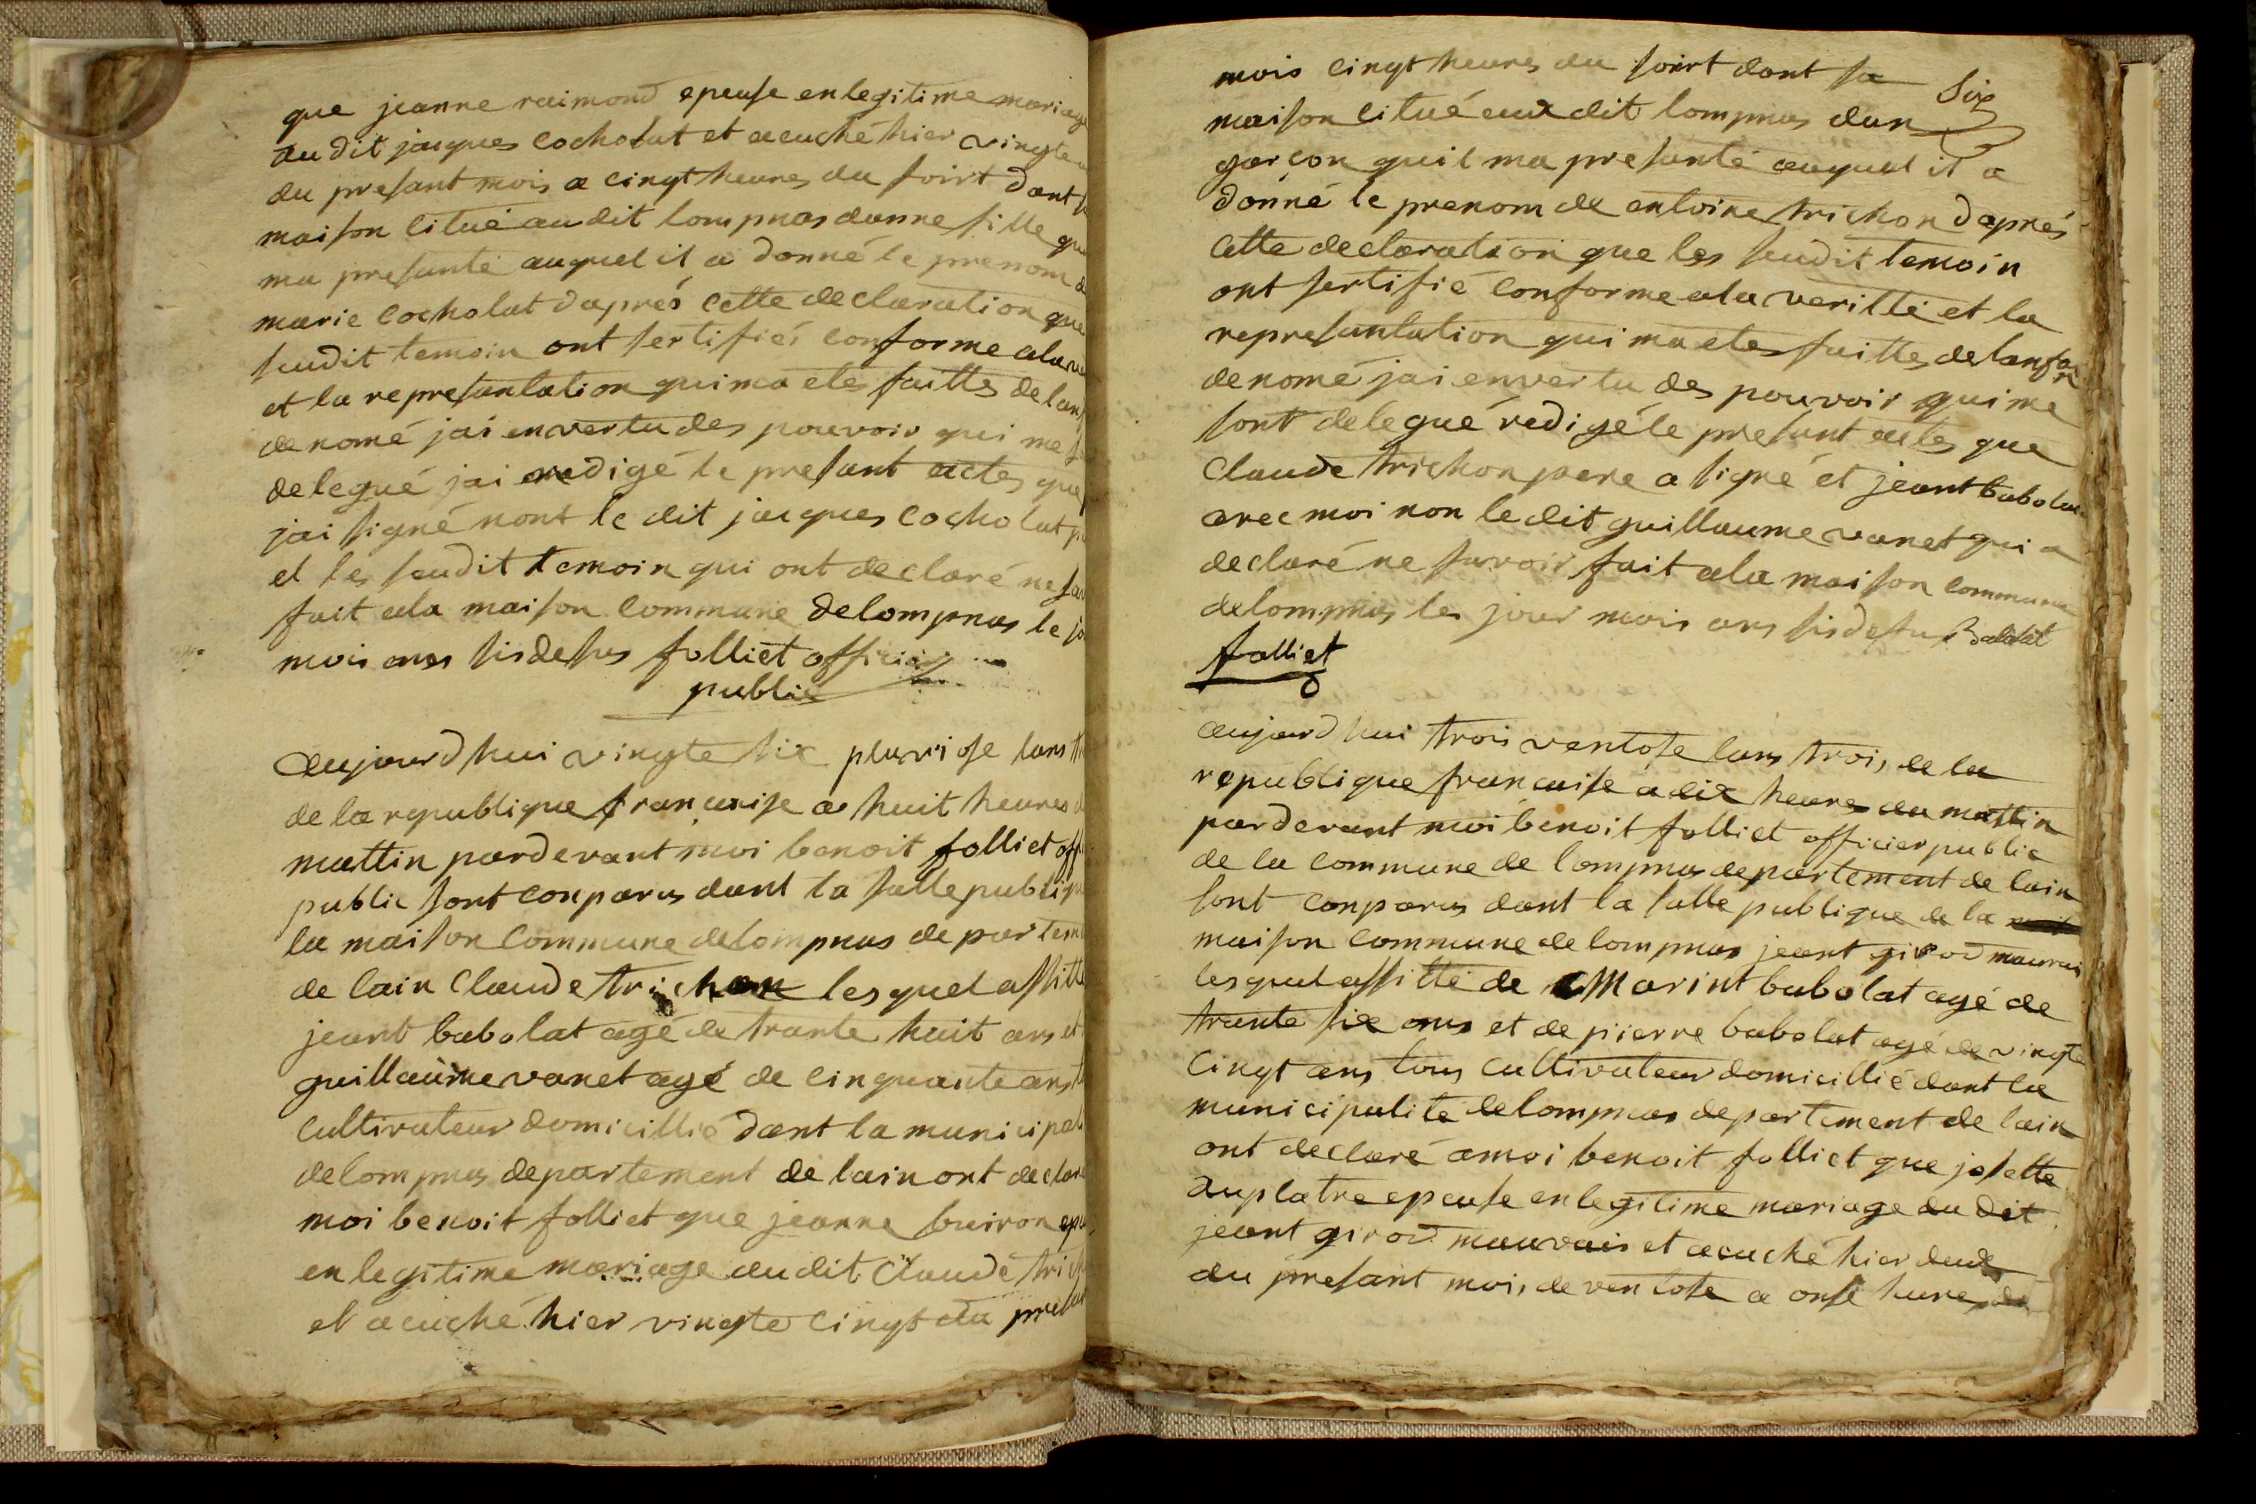 que jeanne raimond epeuse enlegitime mariage
au dit jacques cocholat et acuché hier vingte
du presant mois a cinqt heures du soirt dant
maison citué au dit lompnas dunne fille
ma presanté auquel il a donné le prenom
marie cocholat daprés cette declaration que
seudit temoin ont sertifiés conforme ala
et la represantation qui ma etes faittes de
denomé jai envertu des pouvoir qui me
delegué jai redigé le presant actes
jai signé nont le dit jacques cocholat
et les seudit temoin qui ont declaré ne
fait ala maison commune delompnas le
mois ans sisdesus folliet officier
public
aujourd hui vingte six pluviose lans
de la republique francaise a huit heures
mattin pardevant moi benoit folliet
public sont conparus dant la salle
la maison commune delompnas
de lain Claude trichon lesquel
jeant babolat agé de trante huit ans et
guillaume vanet agé de cinquante ans
cultivateur domicillié dant la
delompnas departement de lain ont
moi benoit folliet que jeanne buiron
enlegitime mariage audit Claude
et acuché hier vingte cinqt du
Six
mois cinqt heures du soirt dant sa
maison citué aux dit lompnas dun
garcon quil ma presanté auquel il a
donné le prenom de entoine trichon daprés
cette declaration que les seudit temoin
ont sertifié conforme ala verilté et la
represantation qui ma etes faittes de lanfan
denomé jai envertu des pouvoir qui me
sont delegué redigé le presant actes que
Claude trichon pere a signé et jeant babolat
avec moi non le dit guillaume vanet qui a
declaré ne savoir fait ala maison commune
delompnas les jour mois ans sisdesus Babolat
folliet
aujourd hui trois ventose lans trois de la
republique francaise a dix heures du mattin
pardevant moi benoit folliet officier public
de la commune de lompnas departement de lain
sont conparus dant la salle publique de la
maison commune delompnas jeant girod mauvais
lesquel assitté de Marint babolat agé de
trante six ans et de pierre babolat agé de vingte
cinqt ans tous cultivateur domicillié dant la
municipalité delompnas departement de lain
ont declaré amoi benoit folliet que josette
duplatre epeuse enlegitime mariage du dit
jeant girod mauvais et acuché hier deux
du presant mois de ventose a onse hures du